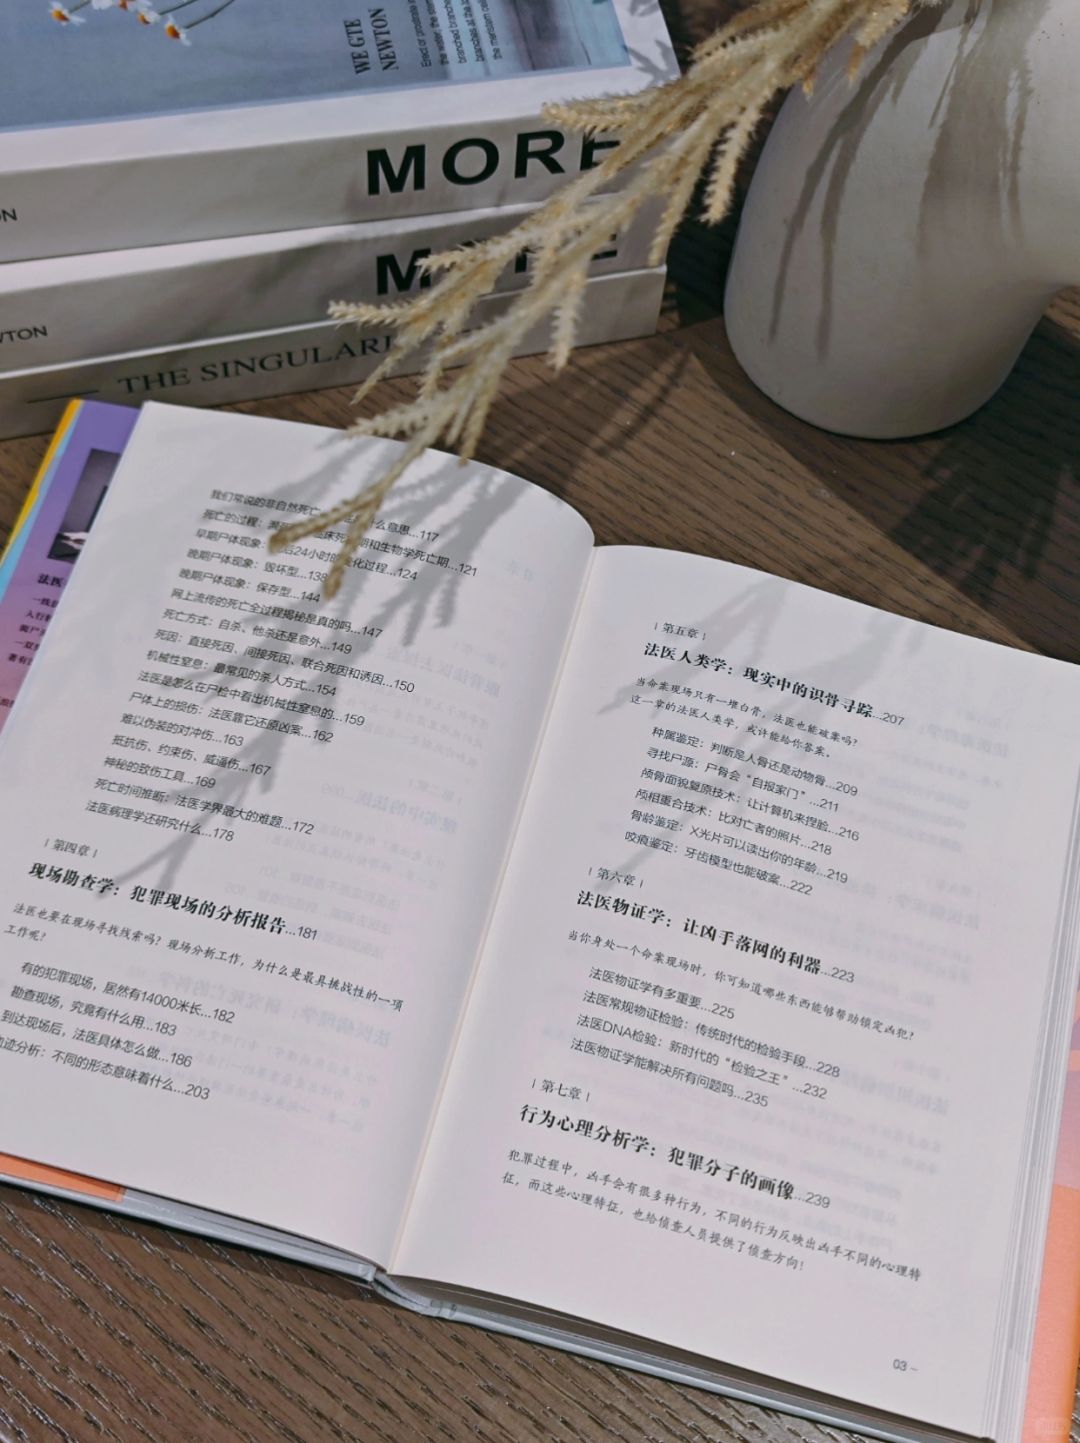 WE GTE
NEWTON
Ered or probrate in
the water; the stems
branched branched
branches at the
the meristem
MORE
ON
M
E
WTON
THE SINGULARI
法医
一线
人行
揭尸
一双
著有
我们常说的非自然死亡 什么意思...117
死亡的过程：濒 临床死 期和生物学死亡期...121
早期尸体现象： 后24小时的 化过程...124
晚期尸体现象：毁坏型...138
晚期尸体现象：保存型...144
网上流传的死亡全过程揭秘是真的吗...147
死亡方式：自杀、他杀还是意外...149
死因：直接死因、间接死因、联合死因和诱因...150
机械性窒息：最常见的杀人方式...154
法医是怎么在尸检中看出机械性窒息的...159
尸体上的损伤：法医靠它还原凶案...162
难以伪装的对冲伤...163
抵抗伤、约束伤、威逼伤...167
神秘的致伤工具...169
死亡时间推断：法医学界最大的难题...172
法医病理学还研究什么...178
| 第四章 |
现场勘查学：犯罪现场的分析报告...181
法医也要在现场寻找线索吗？现场分析工作，为什么是最具挑战性的一项
工作呢？
有的犯罪现场，居然有14000米长...182
勘查现场，究竟有什么用...183
到达现场后，法医具体怎么做...186
迹分析：不同的形态意味着什么...203
| 第五章 |
法医人类学：现实中的识骨寻踪...207
当命案现场只有一堆白骨，法医也能破案吗？
这一章的法医人类学，或许能给你答案。
种属鉴定：判断是人骨还是动物骨...209
寻找尸源：尸骨会“自报家门”...211
颅骨面貌复原技术：让计算机来捏脸...216
颅相重合技术：比对亡者的照片...218
骨龄鉴定：X光片可以读出你的年龄...219
咬痕鉴定：牙齿模型也能破案...222
| 第六章 |
法医物证学：让凶手落网的利器...223
当你身处一个命案现场时，你可知道哪些东西能够帮助锁定凶犯？
法医物证学有多重要...225
法医常规物证检验：传统时代的检验手段...228
法医DNA检验：新时代的“检验之王”...232
法医物证学能解决所有问题吗...235
| 第七章 |
行为心理分析学：犯罪分子的画像...239
犯罪过程中，凶手会有很多种行为，不同的行为反映出凶手不同的心理特
征，而这些心理特征，也给侦查人员提供了侦查方向！
03 –